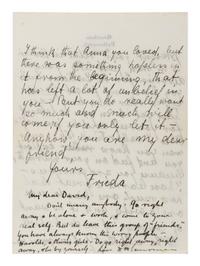 I think that Anna you loved, but
there was something hopeless in
it from the beginning, that
has left a lot of unbelief in
you - But you do really want
so much and much will
come, if you only let it -
Anyhow you are my dear
friend,
Yours
Frieda
My dear David,
Don't marry anybody. Go right
away & be alone & work, & come to your
real self. But do leave this group of friends -
You have always known the wrong people.
Harolds, & Olive's girls. Do go right away, right
away, & be by yourself.